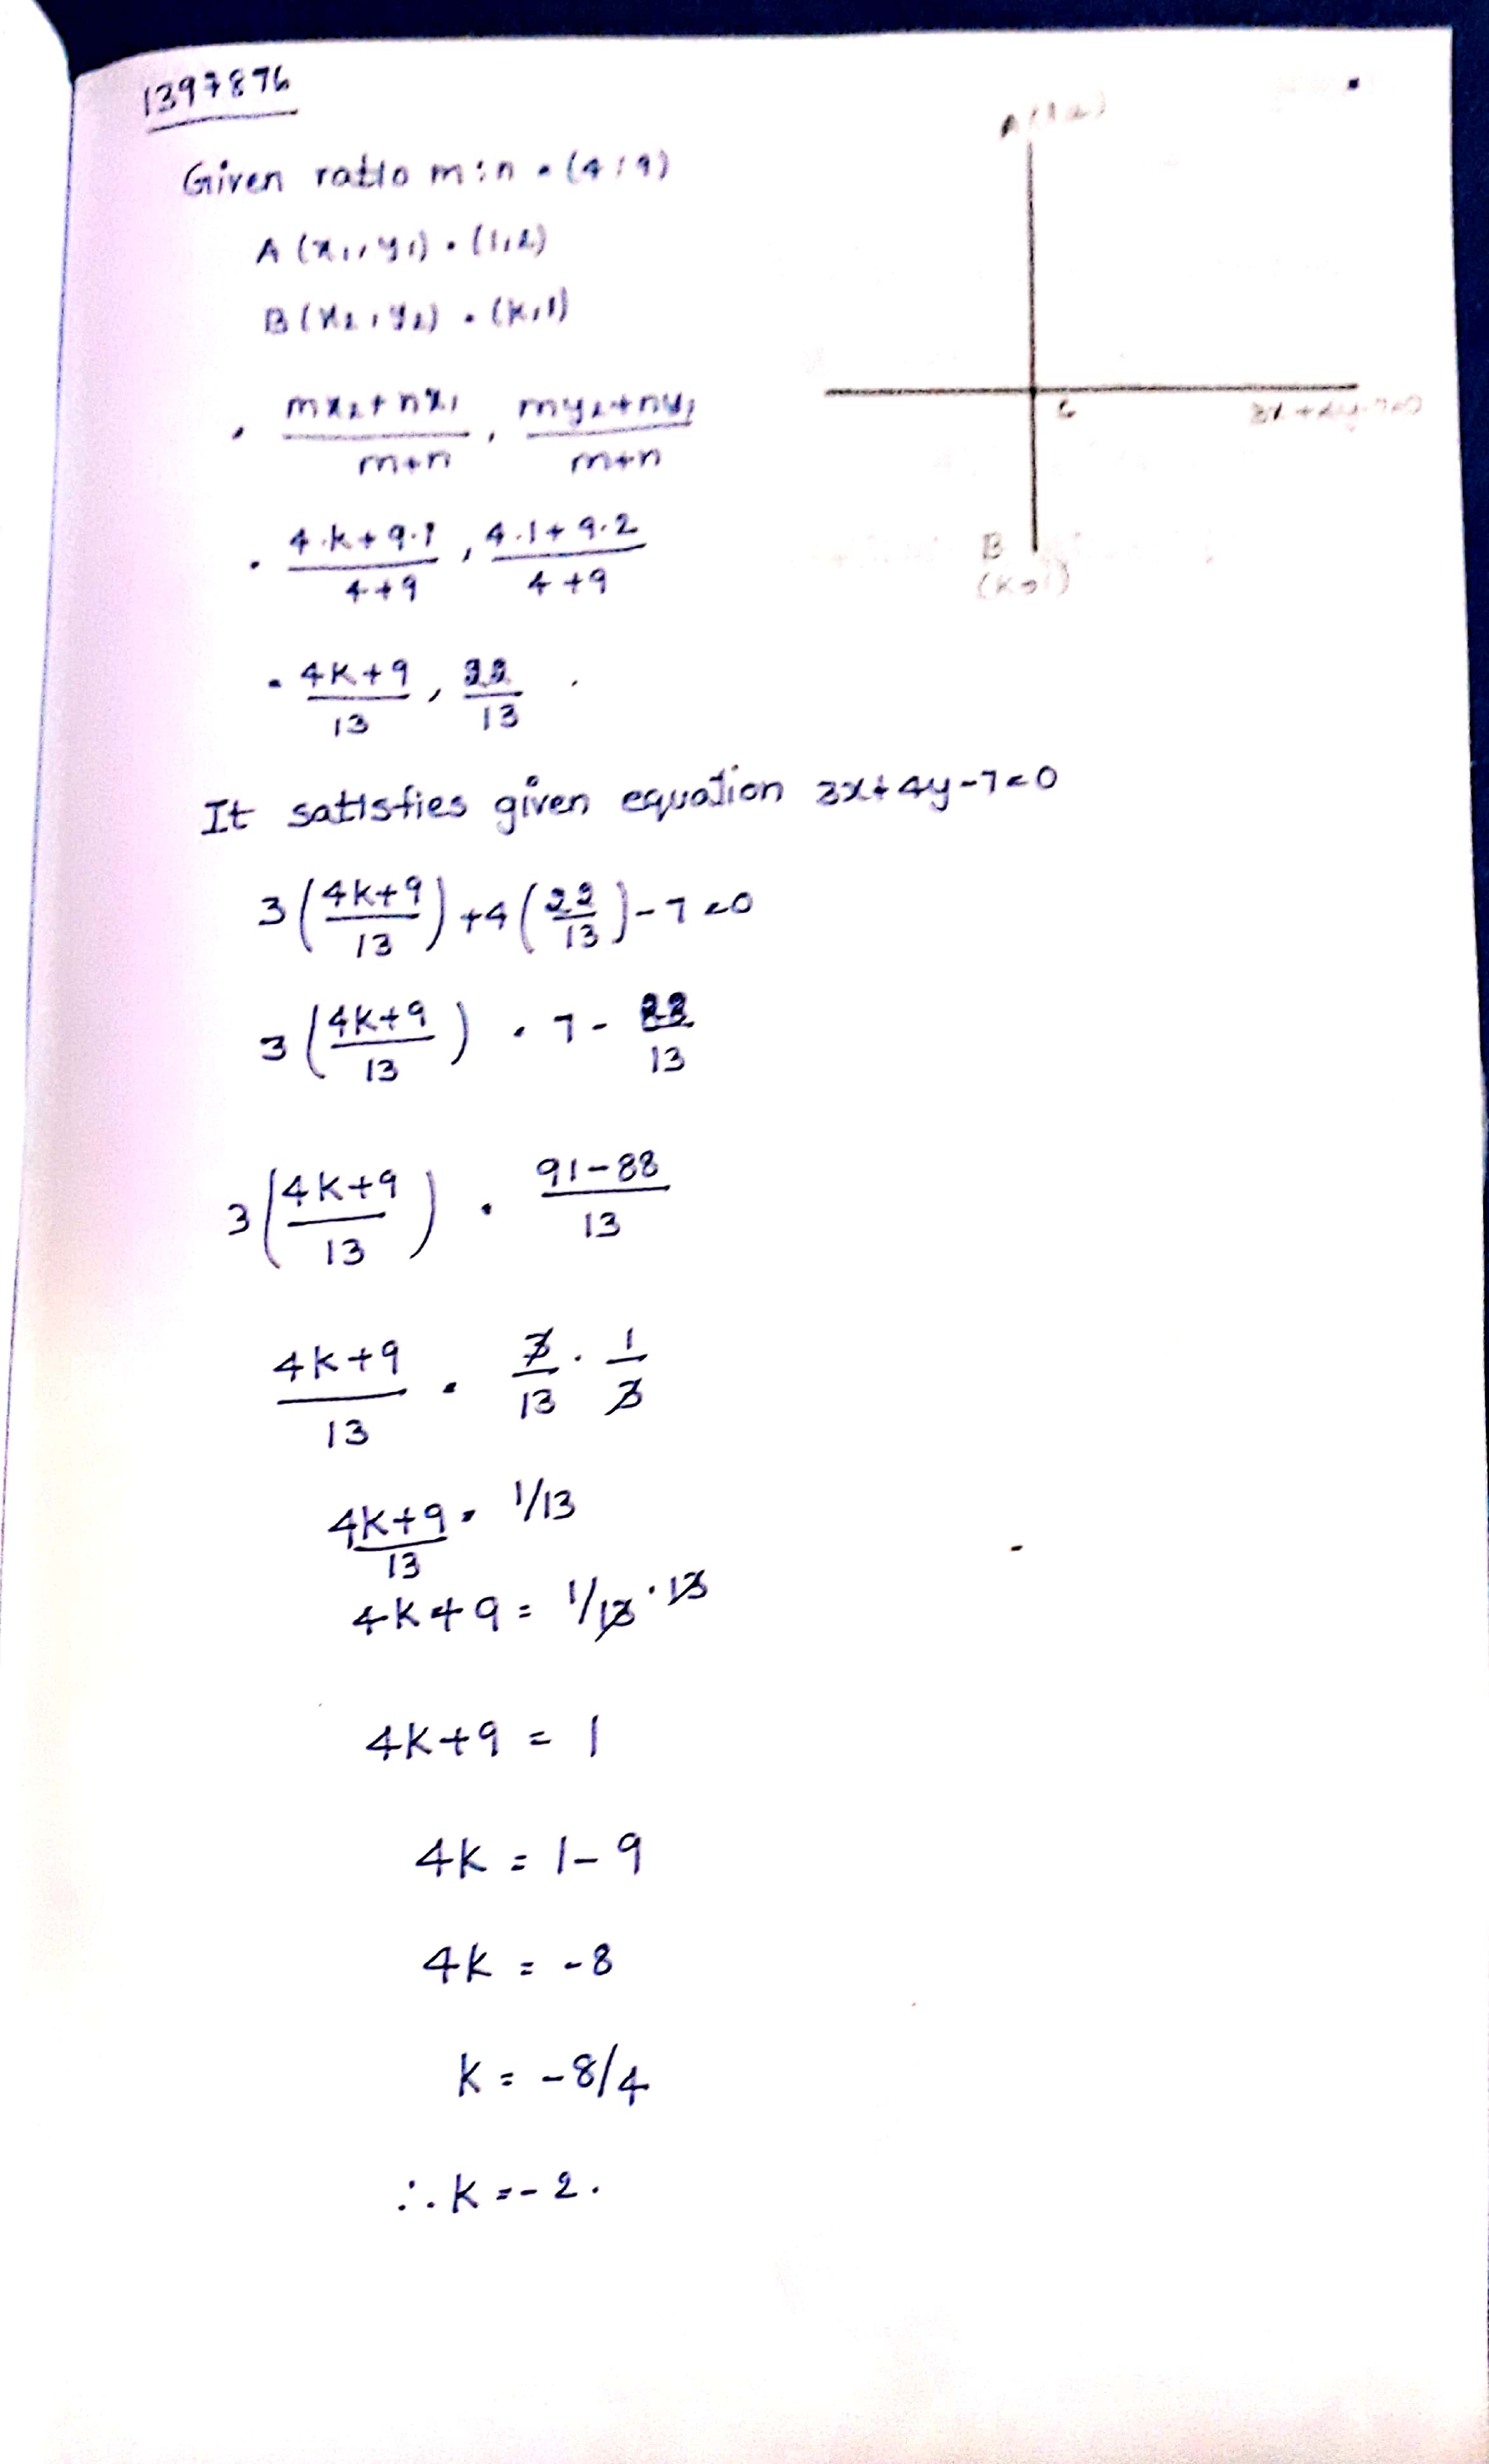 1397876
Given ratio m:n = (4:9)
A (x₁, y₁) = (1,2)
B (x₂, y₂) = (k,1)
= (mx₂+nx₁)/(m+n), (my₂+ny₁)/(m+n)
= (4.k+9.1)/(4+9), (4.1+9.2)/(4+9)
= (4k+9)/13, 22/13
It satisfies given equation 3x+4y-7=0
3((4k+9)/13)+4(22/13)-7=0
3((4k+9)/13) = 7 - 88/13
3((4k+9)/13) = (91-88)/13
(4k+9)/13 = 3/13 . 1/3
(4k+9)/13 = 1/13
4k+9 = 1/13 . 13
4k+9 = 1
4k = 1-9
4k = -8
k = -8/4
∴ k = -2.
A (1,2)
B
(k,1)